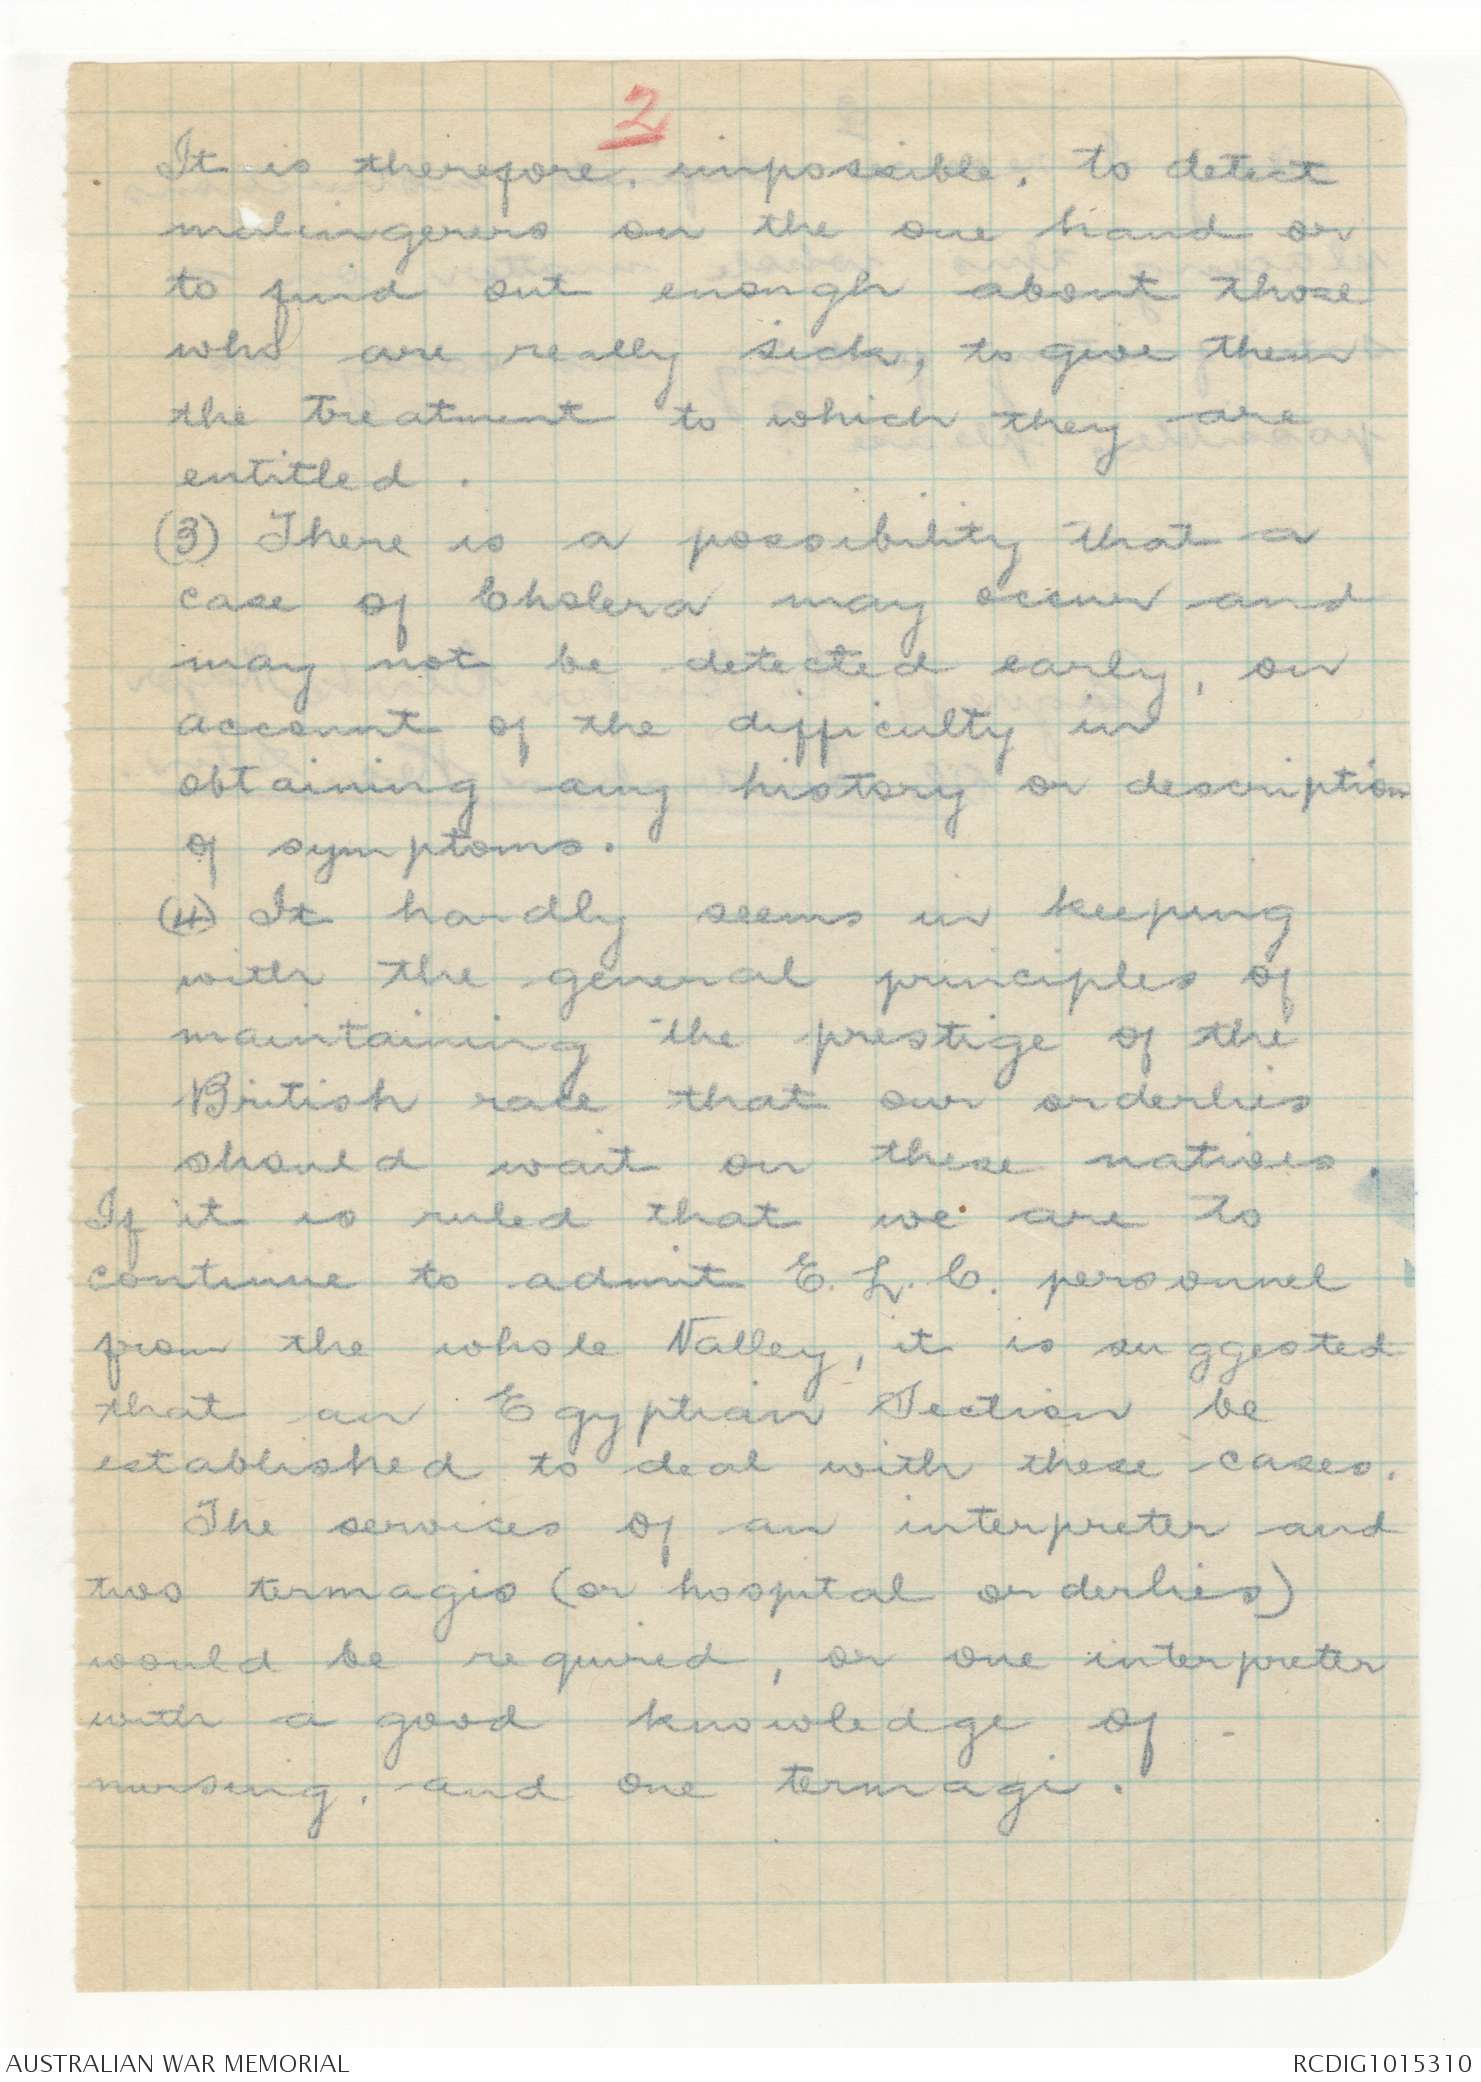 2
It is therefore, impossible, to detect
malingerers on the one hand or
to find out enough about those
who are really sick, to give them
the treatment to which they are
entitled.
(3) There is a possibility that a
case of Cholera may occur and
may not be detected early, on
account of the difficulty in
obtaining any history or description
of symptoms.
(4) It hardly seems in keeping
with the general principles of
maintaining the prestige of the
British race that our orderlies
should wait on these natives.
If it is ruled that we are to
continue to admit E. L. C. personnel
from the whole Valley, it is suggested
that an Egyptian Section be
established to deal with these cases.
The services of an interpreter and
two termagis (or hospital orderlies)
would be required, or one interpreter
with a good knowledge of
nursing, and one termagi.
AUSTRALIAN WAR MEMORIAL
RCDIG1015310